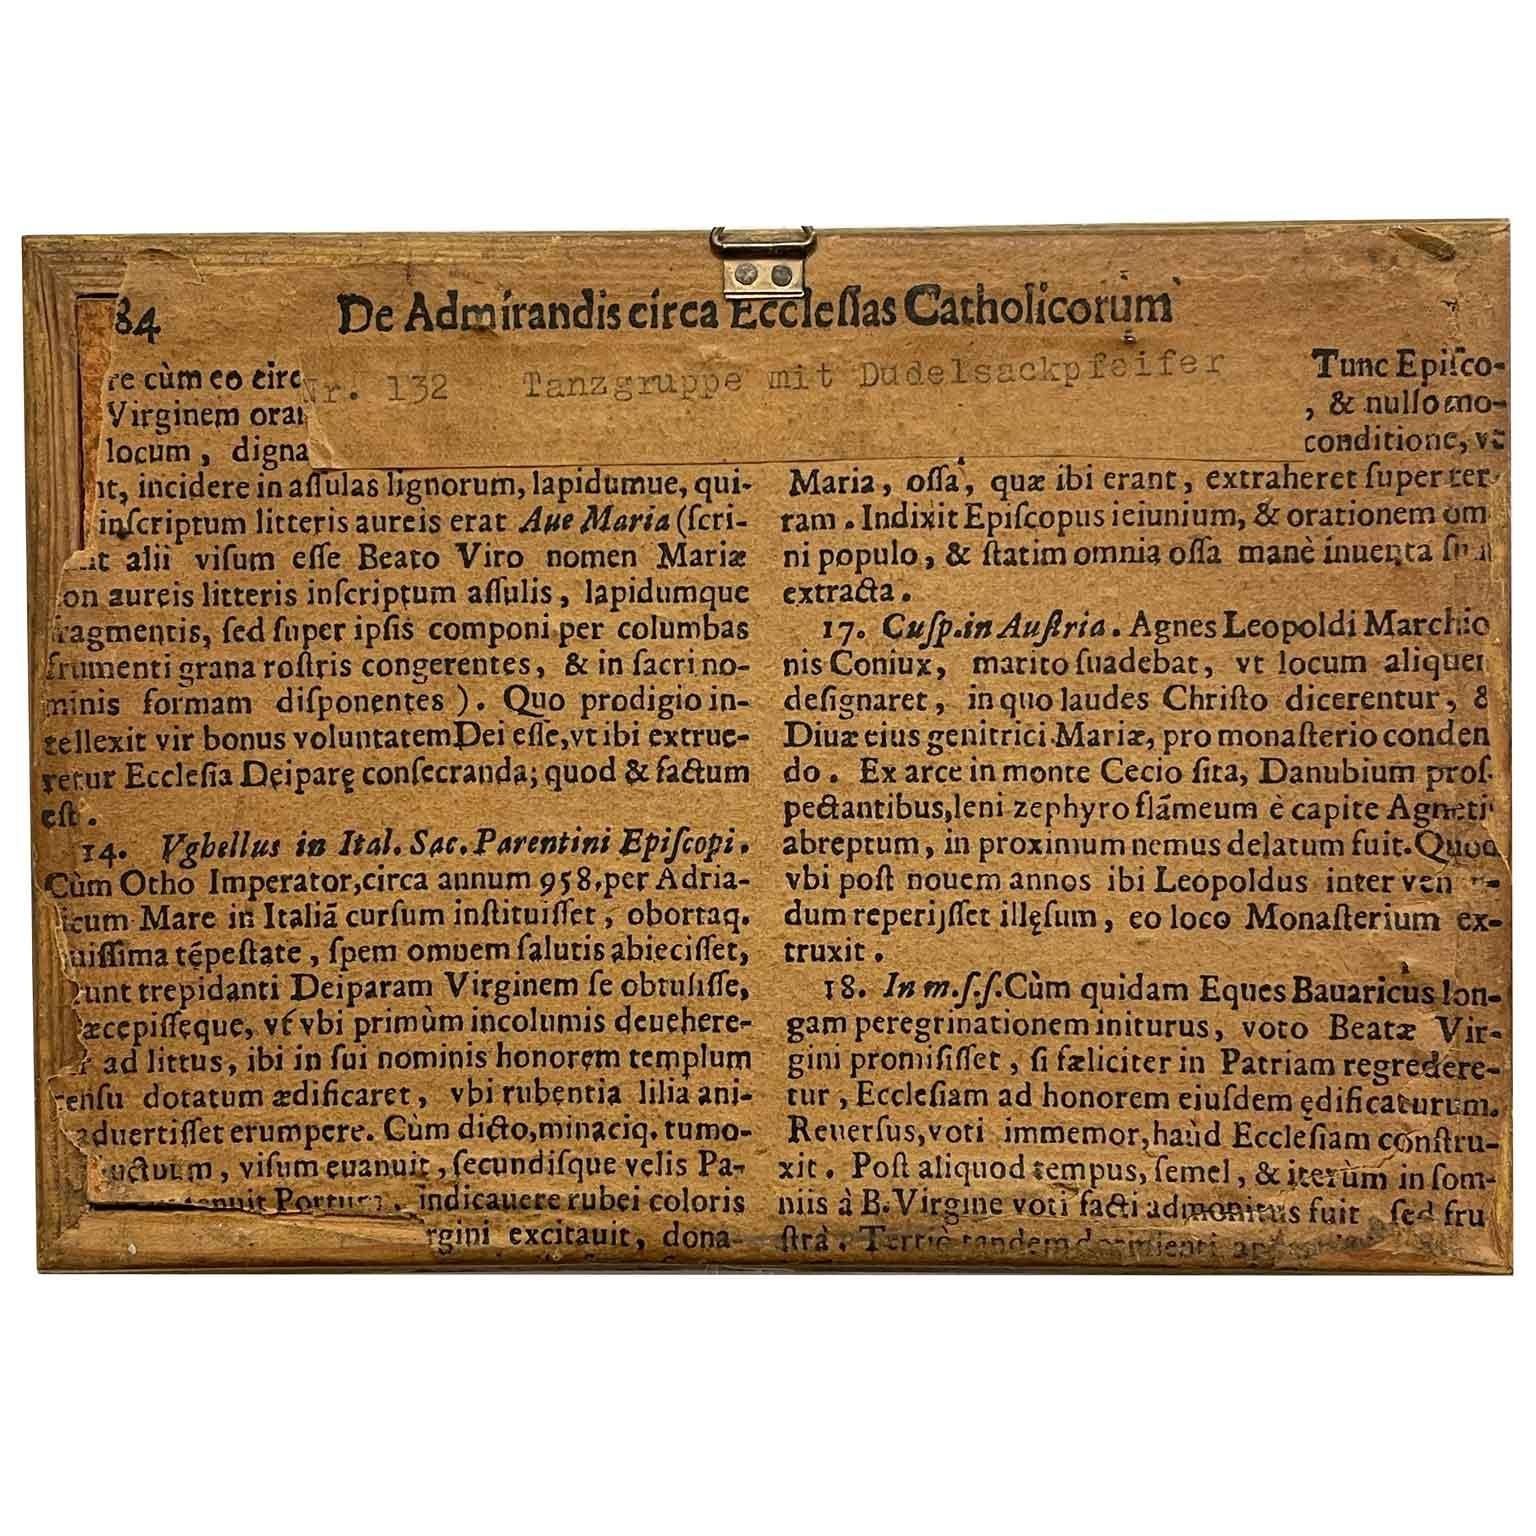 84 De Admirandis circa Eccleſias Catholicorum
Nr. 132 Tanzgruppe mit Dudelsackpfeifer
re cùm eo circ
Virginem orar
locum, digna
nt, incidere in aſſulas lignorum, lapidumue, qui-
inſcriptum litteris aureis erat Aue Maria (ſcri-
alii viſum eſſe Beato Viro nomen Mariæ
on aureis litteris inſcriptum aſſulis, lapidumque
fragmentis, ſed ſuper ipſis componi per columbas
frumenti grana roſtris congerentes, & in ſacri no-
minis formam diſponentes). Quo prodigio in-
tellexit vir bonus voluntatem Dei eſſe, vt ibi extrue-
retur Eccleſia Deiparę conſecranda; quod & factum
eſt.
14. Vghellus in Ital. Sac. Parentini Epiſcopi.
Cùm Otho Imperator, circa annum 958, per Adria-
icum Mare in Italiã curſum inſtituiſſet, obortaq.
uiſſima tẽpeſtate, ſpem omnem ſalutis abieciſſet,
unt trepidanti Deiparam Virginem ſe obtuliſſe,
æcepiſſeque, vt vbi primùm incolumis deuehere-
ad littus, ibi in ſui nominis honorem templum
cenſu dotatum ædificaret, vbi rubentia lilia ani-
aduertiſſet erumpere. Cùm dicto, minaciq. tumo-
uctuum, viſum euanuit, ſecundiſque velis Pa-
tenuit Portum, indicauere rubei coloris
rgini excitauit, dona-
Tunc Epiſco-
, & nullo mo-
conditione, vt
Maria, oſſa, quæ ibi erant, extraheret ſuper ter-
ram. Indixit Epiſcopus ieiunium, & orationem om
ni populo, & ſtatim omnia oſſa manè inuenta ſunt
extracta.
17. Cuſp. in Auſtria. Agnes Leopoldi Marchio
nis Coniux, marito ſuadebat, vt locum aliquem
deſignaret, in quo laudes Chriſto dicerentur, &
Diuæ eius genitrici Mariæ, pro monaſterio conden
do. Ex arce in monte Cecio ſita, Danubium proſ-
pectantibus, leni zephyro flãmeum è capite Agneti
abreptum, in proximum nemus delatum fuit. Quod
vbi poſt nouem annos ibi Leopoldus inter venan-
dum reperijſſet illęſum, eo loco Monaſterium ex-
truxit.
18. In m.ſ.ſ. Cùm quidam Eques Bauaricus lon-
gam peregrinationem initurus, voto Beatæ Vir-
gini promiſiſſet, ſi fæliciter in Patriam regredere-
tur, Eccleſiam ad honorem eiuſdem ędificaturum.
Reuerſus, voti immemor, haùd Eccleſiam conſtru-
xit. Poſt aliquod tempus, ſemel, & iterùm in ſom-
niis à B. Virgine voti facti admonitus fuit ſed fru
ſtrà. Tertiò tandem dormienti